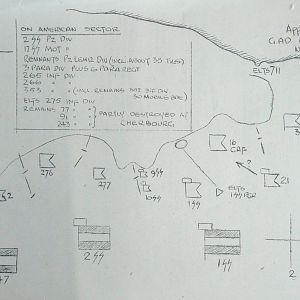 ON AMERICAN SECTOR
2 SS PZ DIV
17 SS MOT "
REMNANTS PZ LEHR DIV (INCL. ABOUT 30 TKS)
3 PARA DIV PLUS 6 PARA REGT
265 INF DIV
266 " "
353 " " (INCL REMAINS
30 MOBILE BDE)
ELTS 275 INF DIV
REMAINS 77 " "
91 " " PARTLY DESTROYED AT
243 " " CHERBOURG
APP
G.AD
N
ELTS 711
16
GAF
276
277
9SS
10SS
ELTS
1SS PZGR
21
3
2
47
2SS
1SS
2